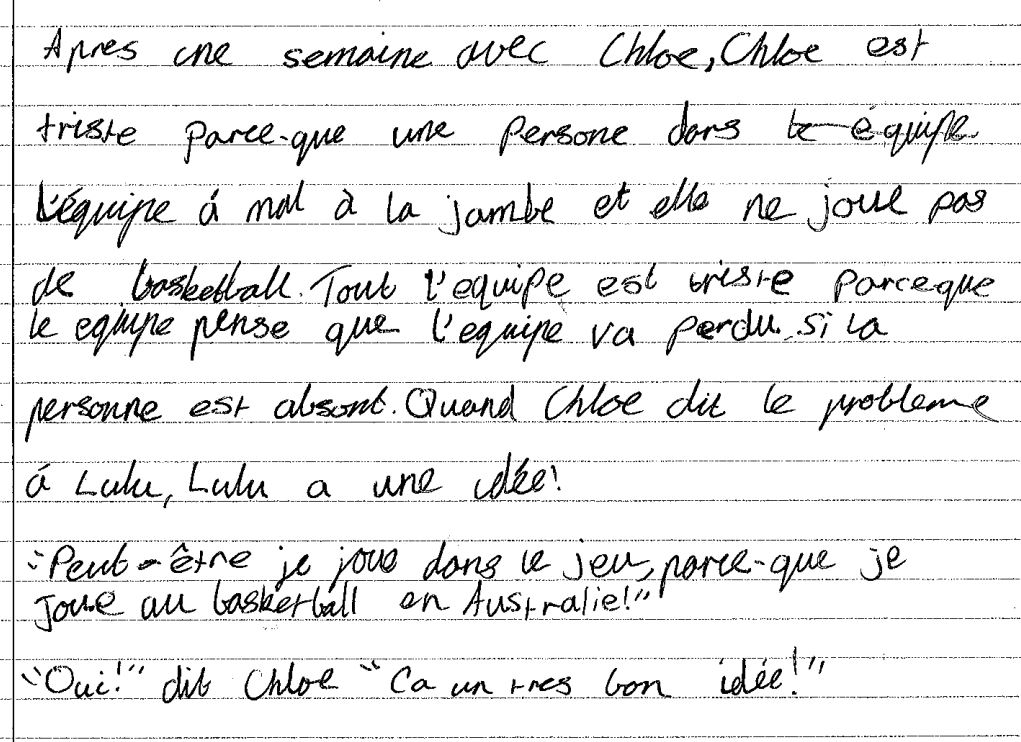 Apres une semaine avec Chloe, Chloe est
triste parce-que une persone dans le équipe
L'équipe á mal à la jambe et elle ne joue pas
de basketball. Tout l'equipe est triste parceque
le equipe pense que l'equipe va perdu si la
personne est absent. Quand Chloe dit le probleme
á Lulu, Lulu a une idée!
"Peut-être je joue dans le jeu, parce-que je
joue au basketball en Australie!"
"Oui!" dit Chloe "Ca un tres bon idée!"